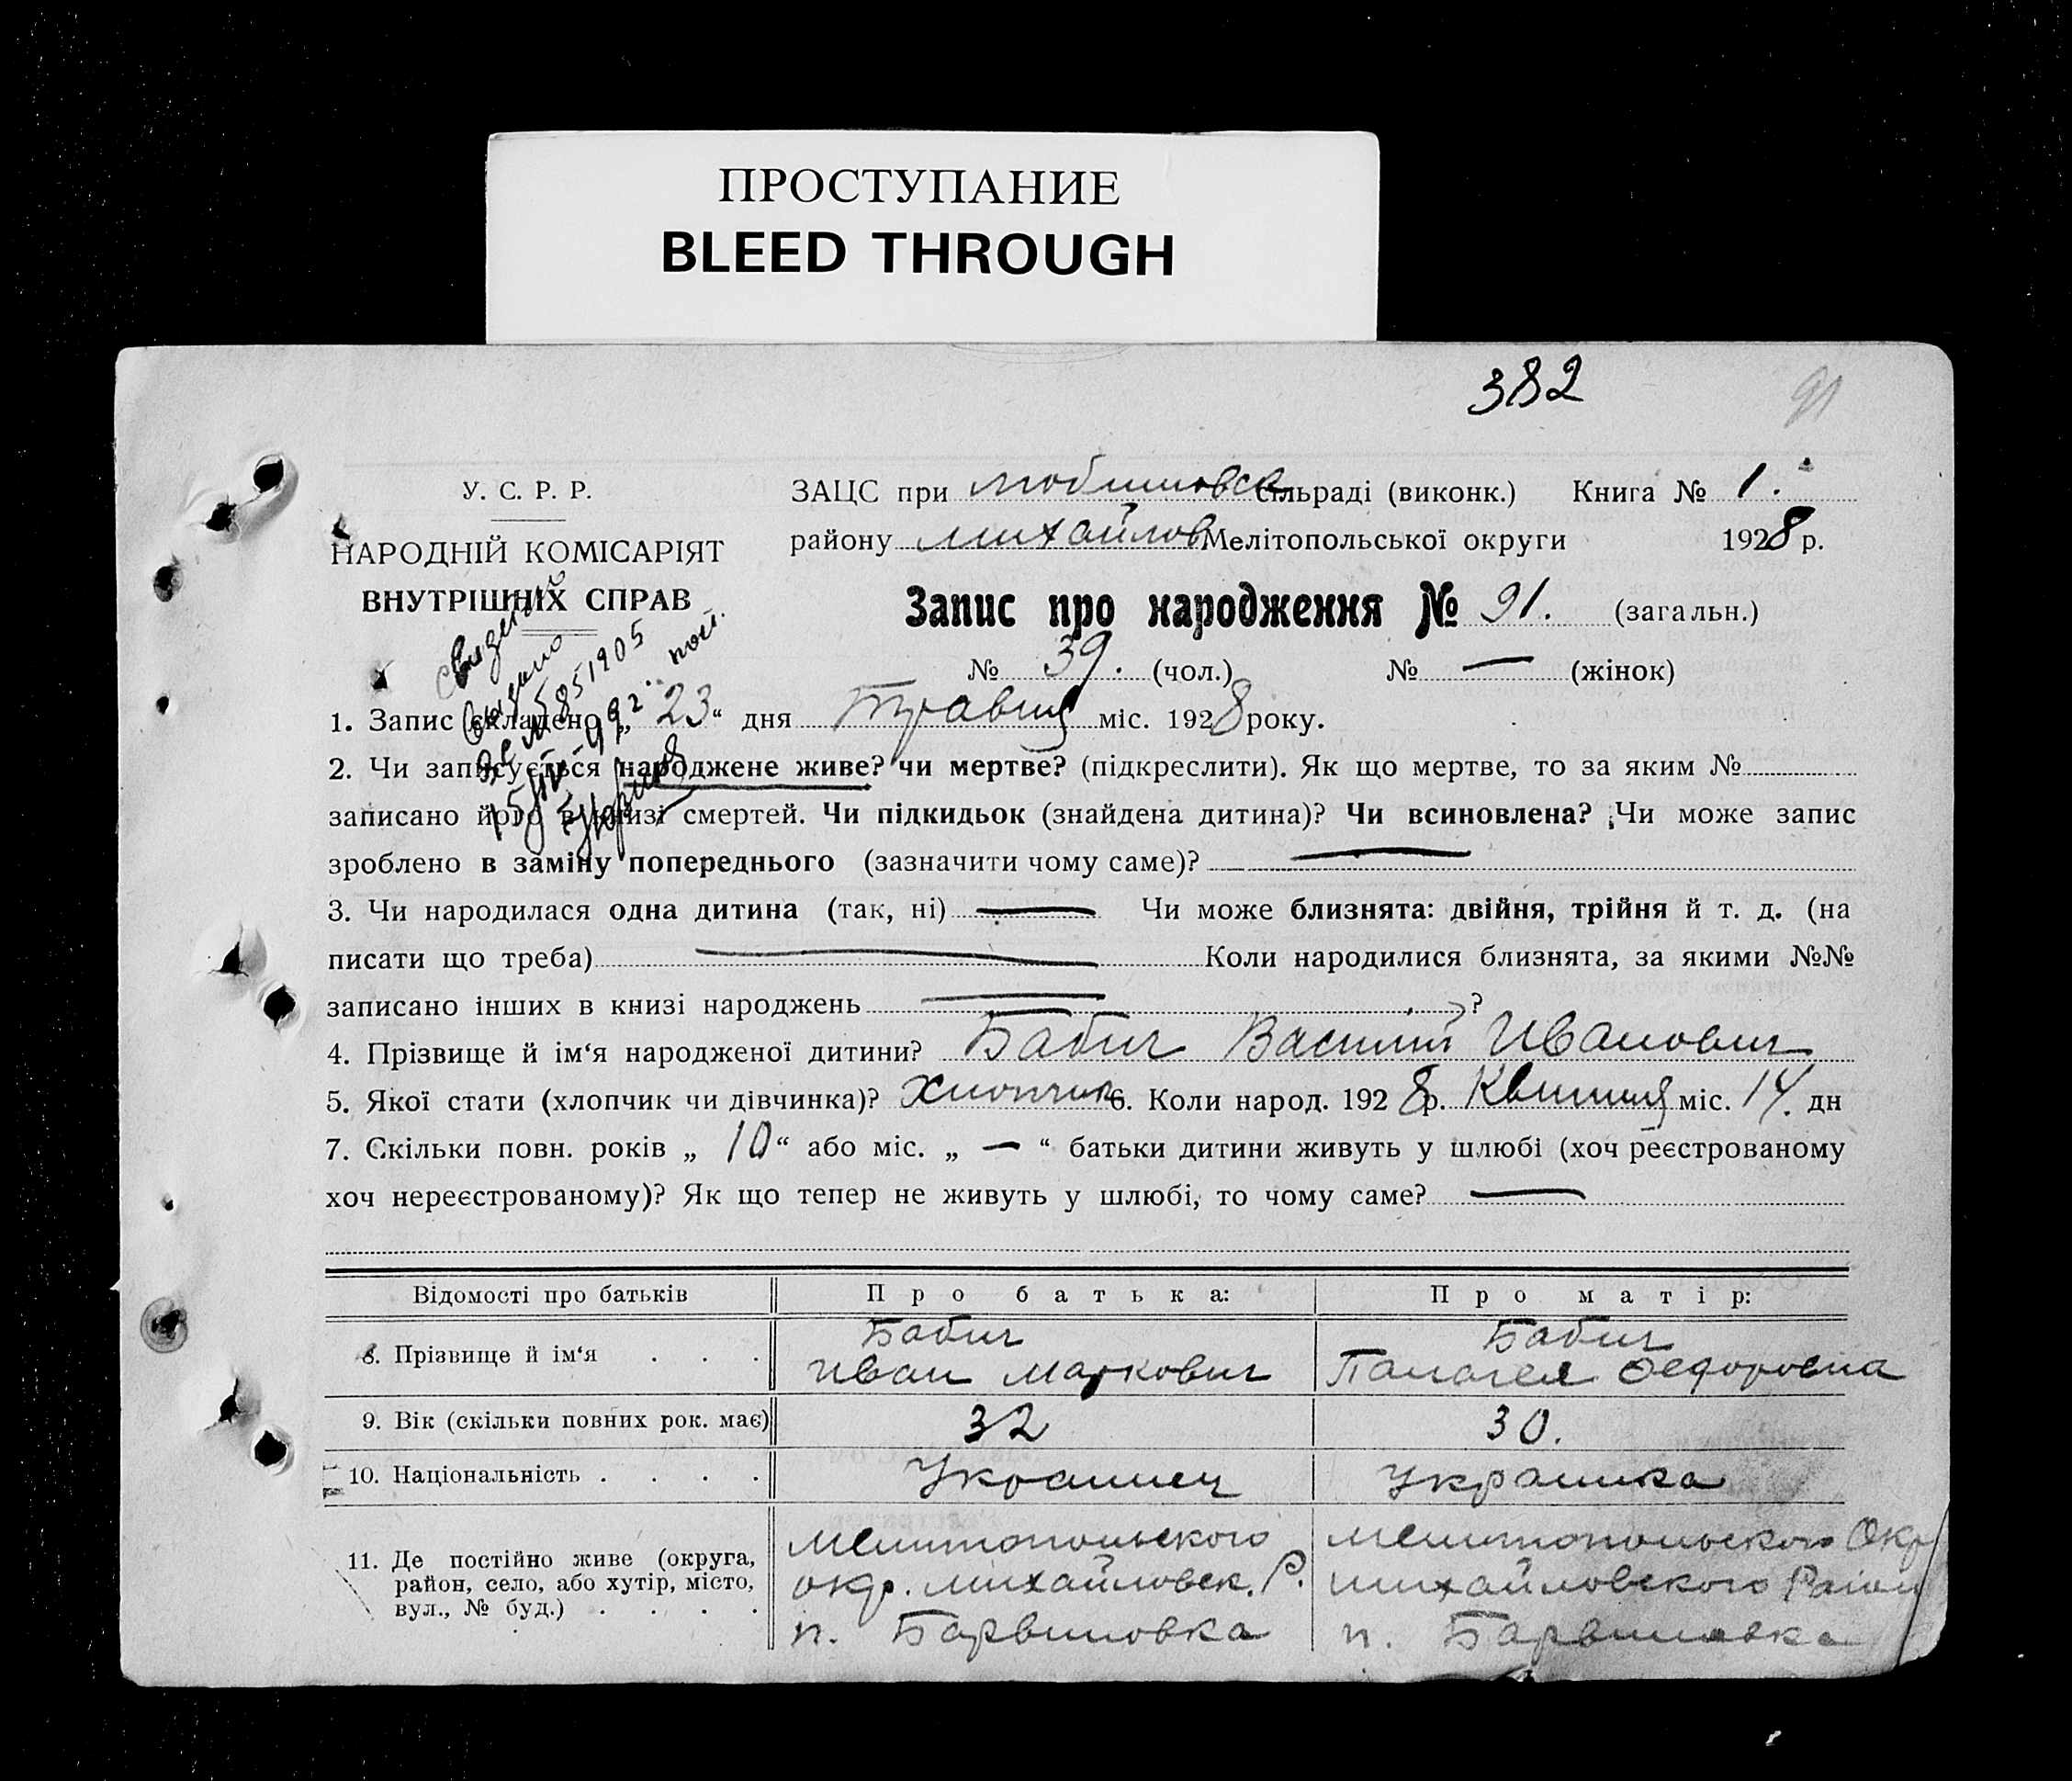 ПРОСТУПАНИЕ
BLEED THROUGH
382
91
У. С. Р. Р.
НАРОДНІЙ КОМІСАРІЯТ
ВНУТРІШНІХ СПРАВ
ЗАЦС при Любимовск сільраді (виконк.) Книга № 1.
району Михайлов Мелітопольської округи 1928 р.
Запис про народження № 91. (загальн.)
№ 39. (чол.) № — (жінок)
выдано
№ 5851905
1. Запис складено „ 23“ дня Травня міс. 1928 року.
2. Чи записується народжене живе? чи мертве? (підкреслити). Як що мертве, то за яким №
записано його в книзі смертей. Чи підкидьок (знайдена дитина)? Чи всиновлена? Чи може запис
зроблено в заміну попереднього (зазначити чому саме)? —
3. Чи народилася одна дитина (так, ні) — Чи може близнята: двійня, трійня й т. д. (на
писати що треба) — Коли народилися близнята, за якими №№
записано інших в книзі народжень — ?
4. Прізвище й ім‘я народженої дитини? Бабич Василий Иванович
5. Якої стати (хлопчик чи дівчинка)? Хлопчик 6. Коли народ. 1928 р. Квитня міс. 14. дн
7. Скільки повн. років „ 10 “ або міс. „ — “ батьки дитини живуть у шлюбі (хоч реєстрованому
хоч нереєстрованому)? Як що тепер не живуть у шлюбі, то чому саме? —
Відомості про батьків Про батька: Про матір:
8. Прізвище й ім‘я . . . Бабич Иван Маркович Бабич Палагея Федоровна
9. Вік (скільки повних рок. має) 32 30.
10. Національність . . . . Украинец Украинка
11. Де постійно живе (округа, Мелитопольского Мелитопольского Окр
район, село, або хутір, місто, окр. Михайловск. Р. Михайловского Район
вул., № буд.) . . . . п. Барвиновка п. Барвиновка